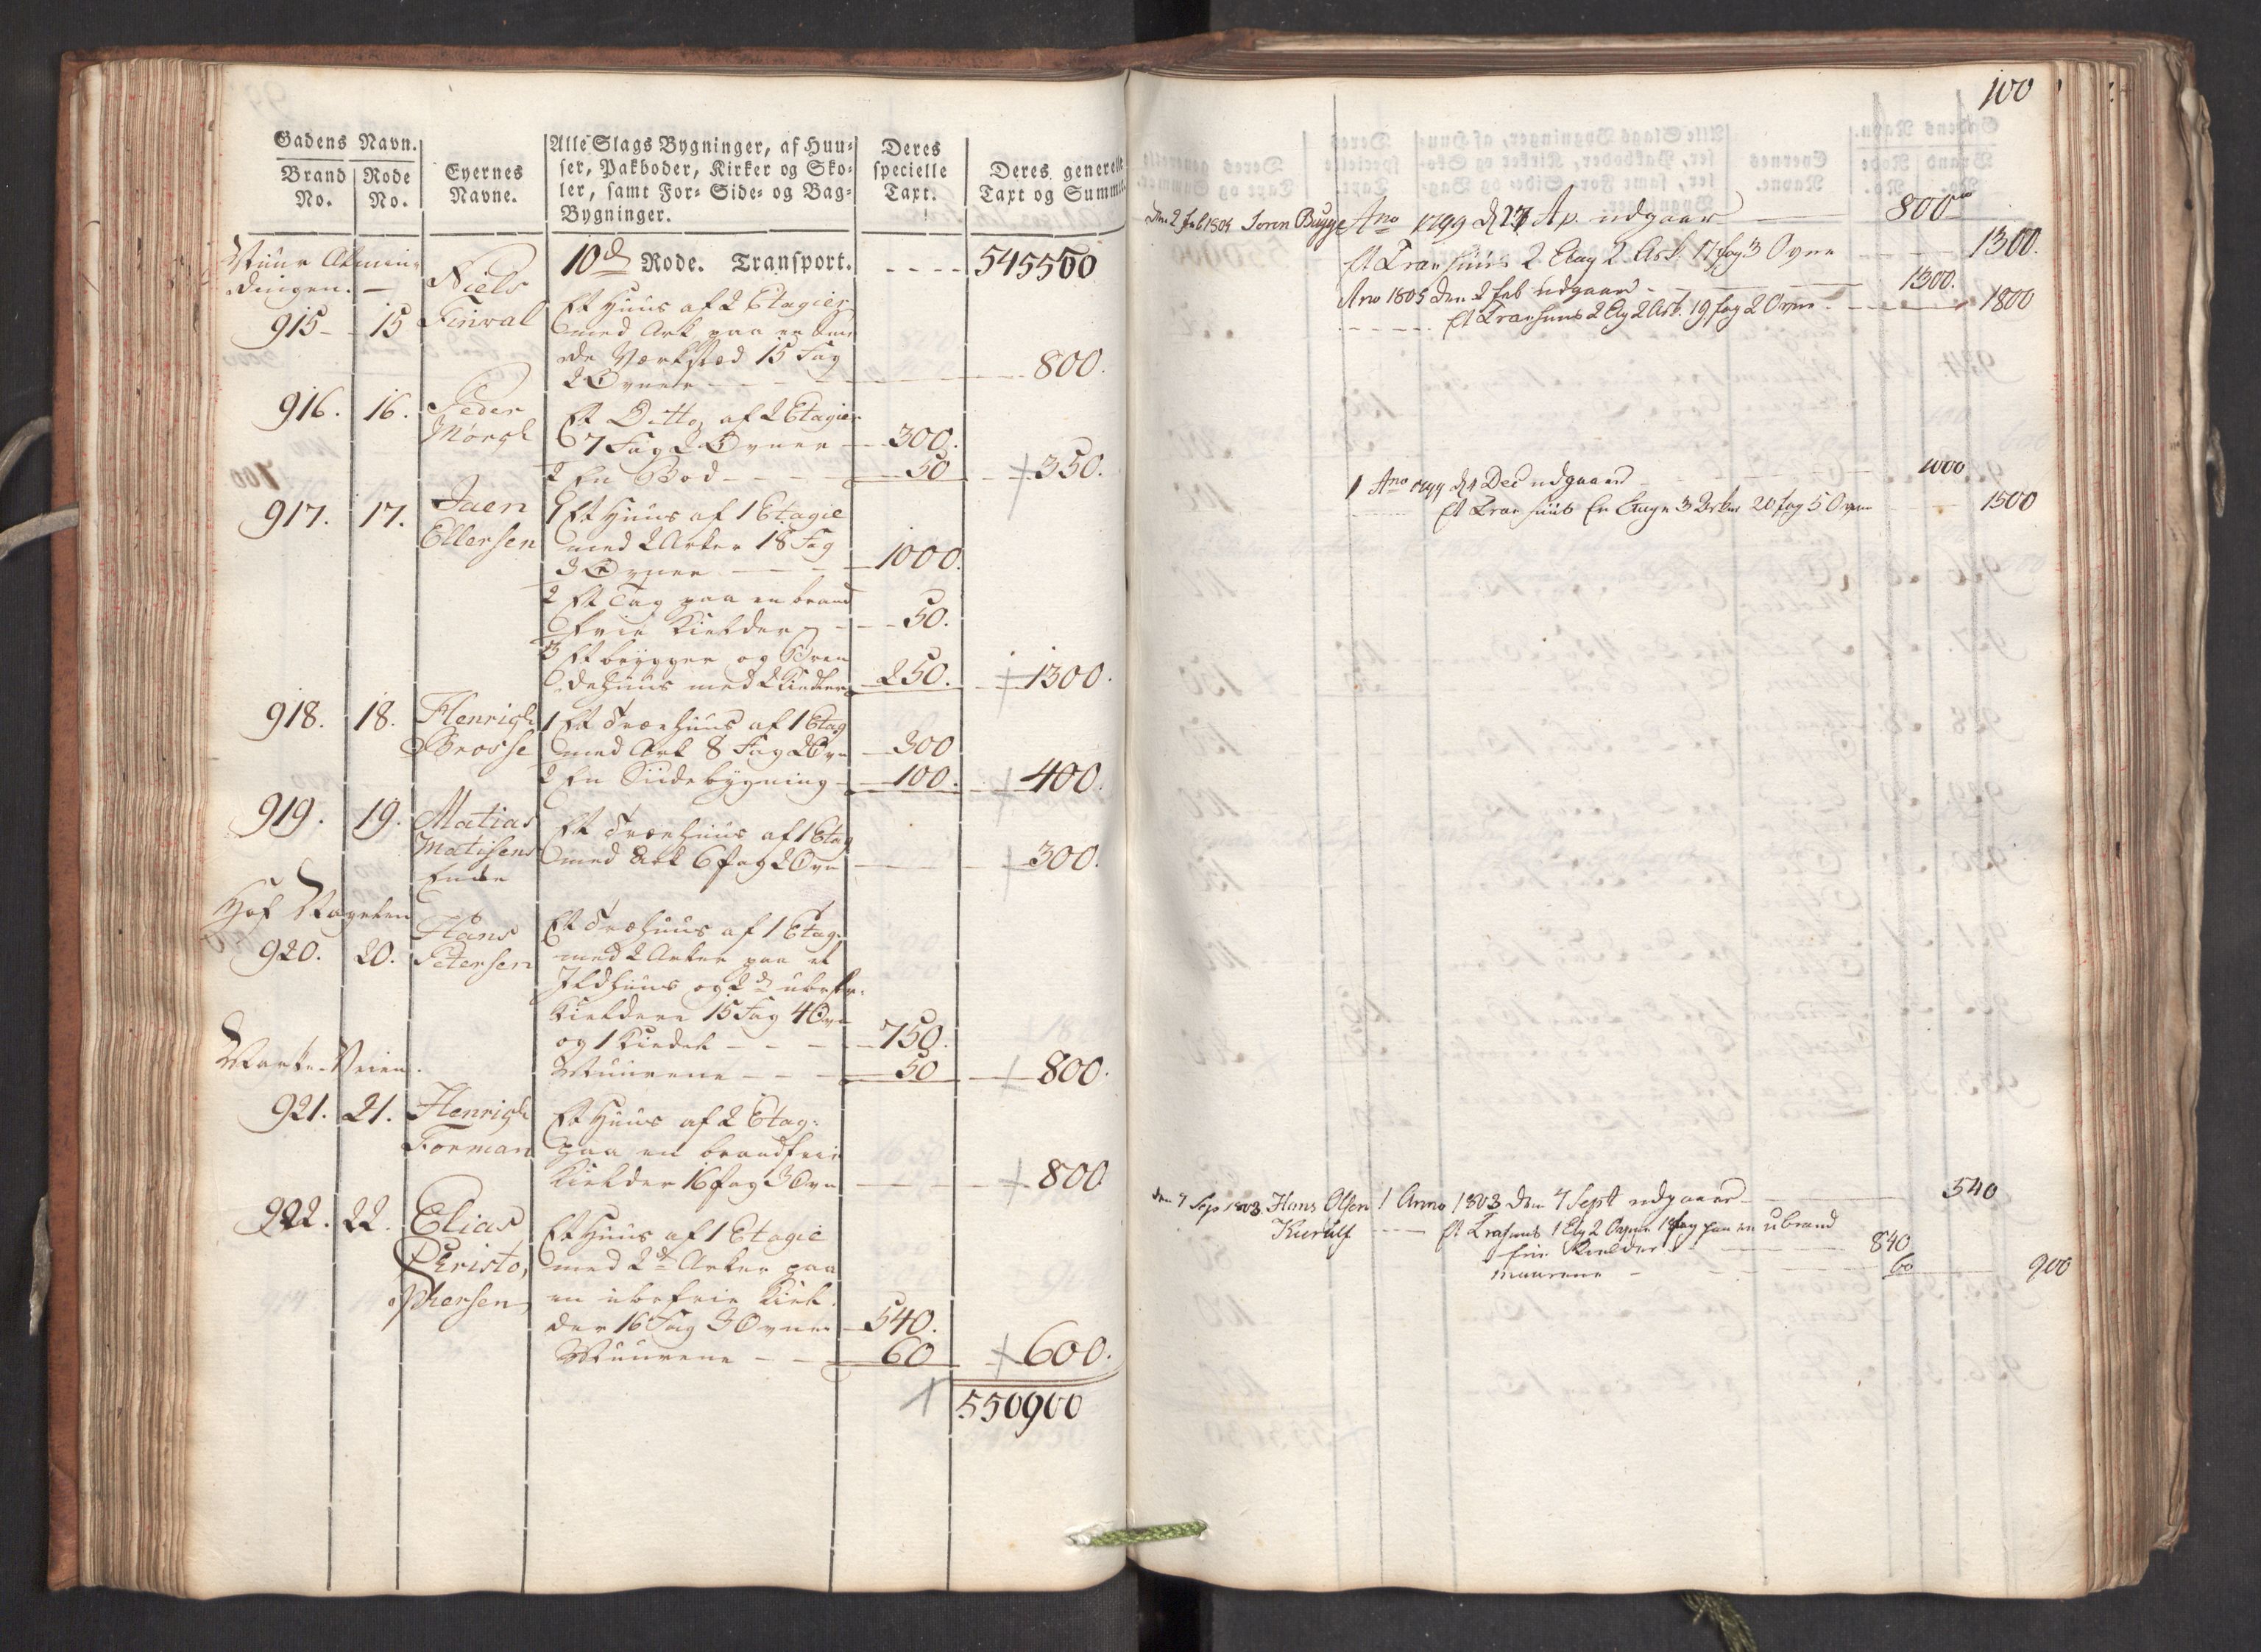 Gadens Navn.
Brand No.
Rode No.
Eyernes Navne.
Alle Slags Bygninger, af Huu-
ser, Pakboder, Kirker og Sko-
ler, samt For- Side- og Bag-
Bygninger.
Deres specielle Taxt.
Deres generelle Taxt og Summa.
Muur Almin-
dingen.
10de Rode. Transport. 545500
915 15 Niels
Finval
Et Huus af 2 Etagier
med Ark paa
Værksted 15 Fag
2 Ovner 800.
916. 16. Peder
Mørch
Et Ditto af 2 Etagier
7 Fag 2 Ovner 300.
2 En Bod 50 350.
917. 17. Jaen
Ellersen
1 Et Huus af 1 Etagie
med 2 Arker 18 Fag
3 Ovner 1000.
2 Et Tag paa en brand
frie Kielder 50.
3 Et brygger og Bren
dehuus med 2 Kiedler 250. 1300.
918. 18. Henrich
Grosse
1 Et Træehuus af 1 Etag
med Ark 8 Fag 2 Ovn 300
2 En Siidebygning 100. 400.
919. 19. Matias
Matisens
Enke
Et Træehuus af 1 Etag
med Ark 6 fag 2 Ovn 300.
920. 20. Hans
Petersen
Et Træhuus af 1 Etag.
med 2 Arker paa et
Ildhuus og 2de ubrfr.
Kieldere 15 Fag 4 Ovn
og 1 Kiedel 750.
Muurene 50 800.
Mark-Veien.
921. 21. Henrich
Forman
Et Huus af 2 Etag.
paa en brandfrie
Kielder 16 fag 3 Ovn 800
922. 22. Elias
Christo,
phersen
Et Huus af 1 Etagie
med 2de Arker paa
en ubrfrie Kiel
der 16 Fag 3 Ovner 540.
Muurene 60 600.
550900
100
den 2 Feb 1805 Soren Bugge Ano 1799 d 27 Ap. udgaar 800
Et Træ huus 2 Etag 2 Ark. 17 fag 3 Ovne 1300.
Ano 1805 den 2 feb udgaar 1300.
Et Træhuus 2 Etg 2 Ark. 19 fag 2 Ovne 1800
1 Ano 1799 d 4 Dec udgaar 1000
Et Træ huus En Etage 3 Arker 20 fag 5 Ovne 1500
den 7 Sep 1803 Hans Olsen 1 Anno 1803 den 7 Sept udgaar 540
Kurulf
Et Træhuus 1 Etg 2 Ovne fag paa en ubrand
frie Kielder 840
muurene 60 900